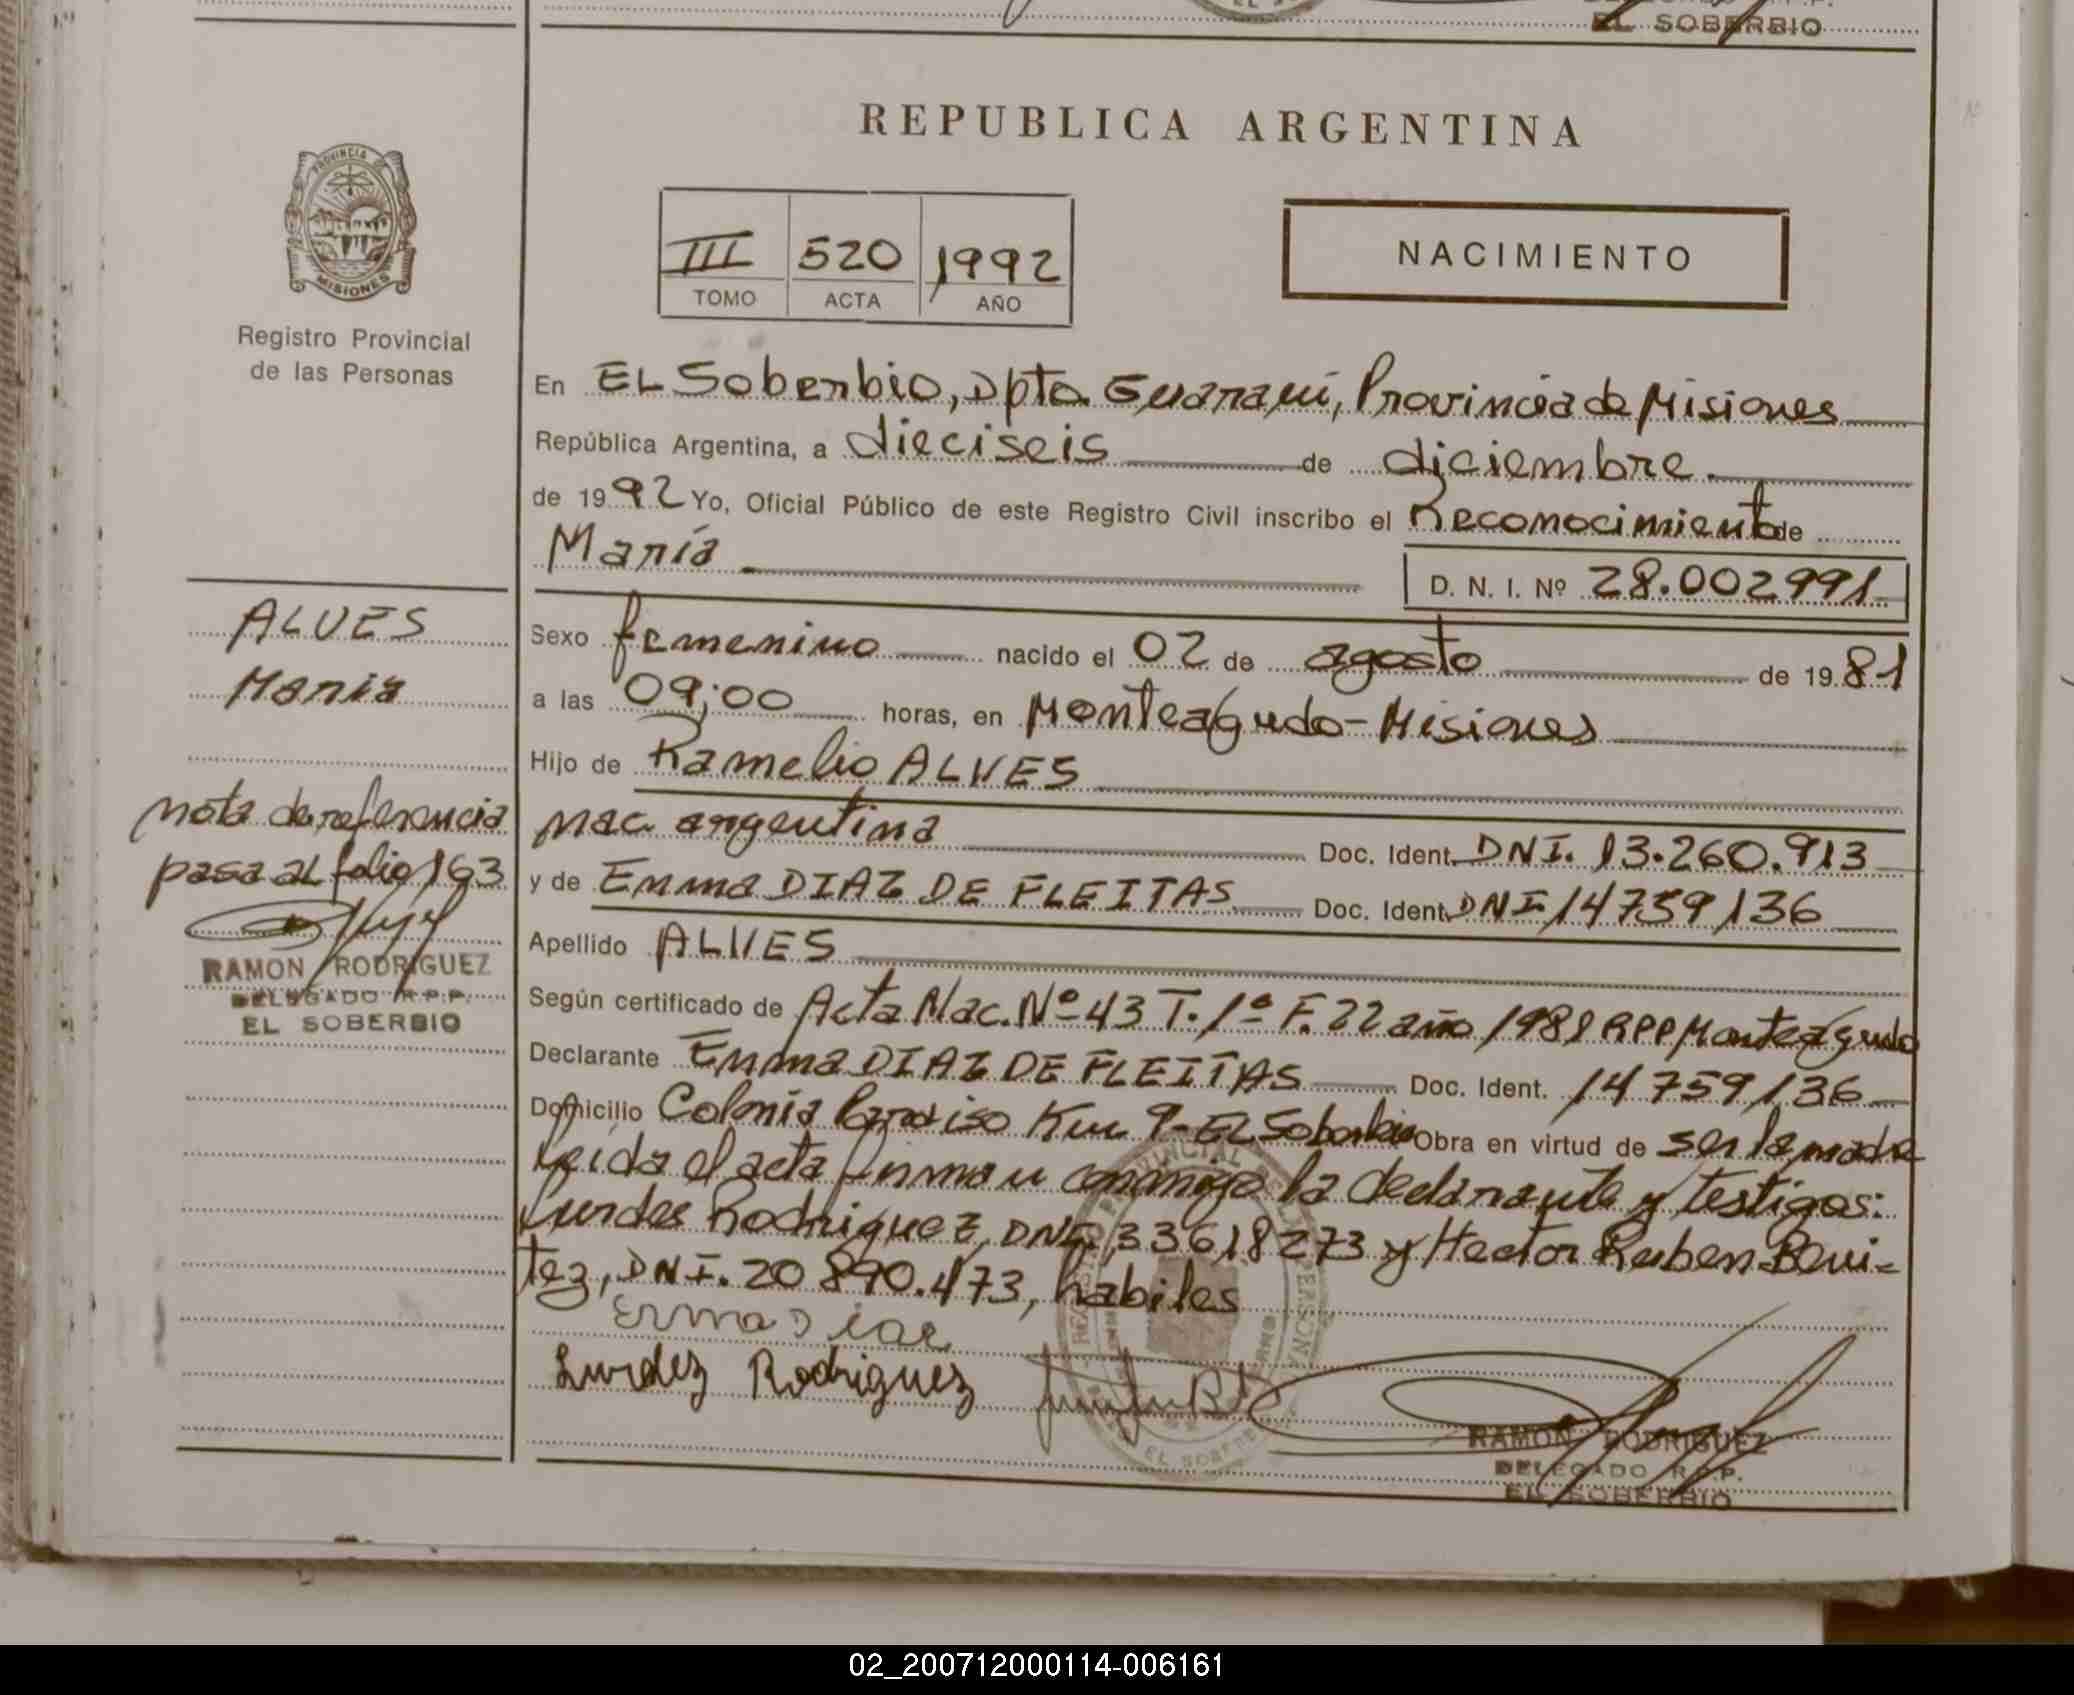 EL SOBERBIO
REPUBLICA ARGENTINA
PROVINCIA DE
MISIONES
Registro Provincial
de las Personas
III 520 1992
TOMO ACTA AÑO
NACIMIENTO
En EL Soberbio, Dpto. Guaraní, Provincia de Misiones
República Argentina, a dieciseis de diciembre
de 1992 Yo, Oficial Público de este Registro Civil inscribo el Reconocimiento de
María
D. N. I. Nº 28.002991
Sexo femenino nacido el 02 de agosto de 1981
a las 09;00 horas, en Monteagudo - Misiones
Hijo de Ramelio ALVES
nac. argentina Doc. Ident. DNI. 13.260.913
y de Emma DIAZ DE FLEITAS Doc. Ident. DNI 14759136
Apellido ALVES
Según certificado de Acta Nac. Nº 43 T. 1º F. 22 año 1981 RPP Monteagudo
Declarante Emma DIAZ DE FLEITAS Doc. Ident. 14759136
Domicilio Colonia Paraiso Km 9 - EL Soberbio Obra en virtud de ser la madre
leida el acta firman conmigo la declarante y testigos:
Lurdes Rodriguez, DNI. 33618273 y Hector Ruben Beni-
tez, DNI. 20890.473, habiles
Erma Diaz
Lurdez Rodriguez
RAMON RODRIGUEZ
DELEGADO R.P.P.
EL SOBERBIO
ALVES
Maria
nota de referencia
pasa al folio 163
RAMON RODRIGUEZ
DELEGADO R.P.P.
EL SOBERBIO
02_200712000114-006161